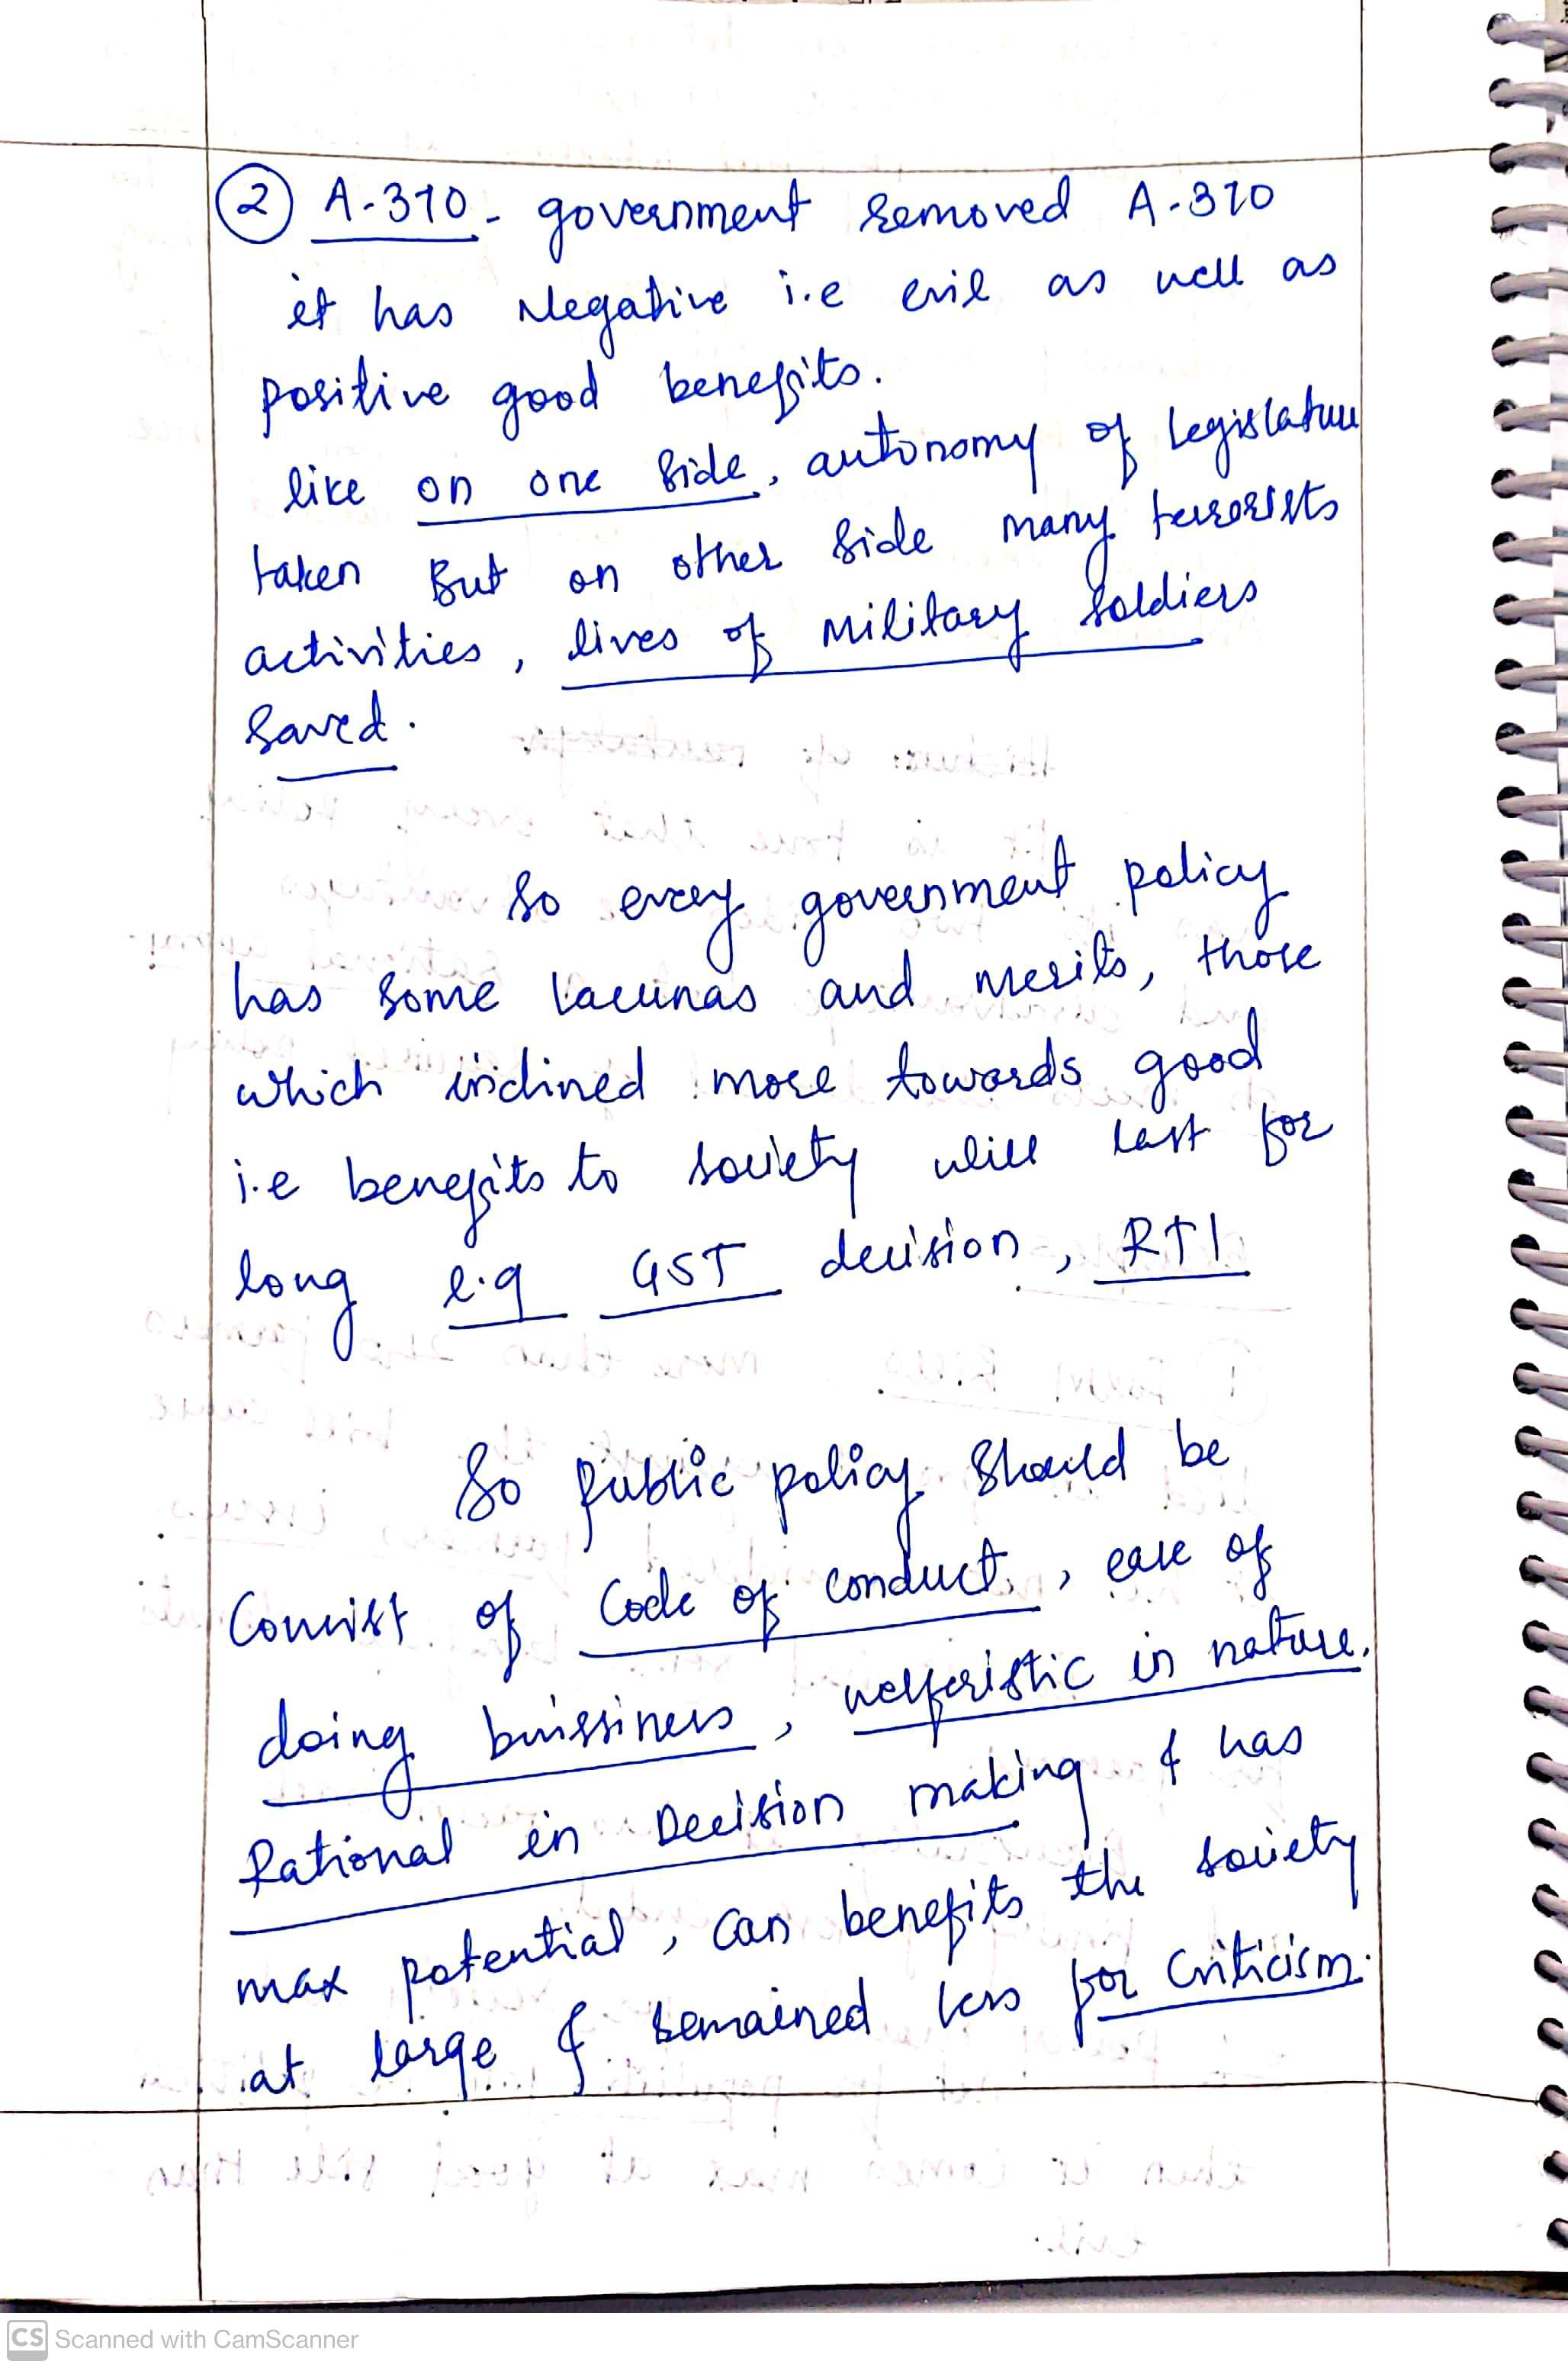 ② A-370- government removed A-370
it has Negative i.e evil as well as
positive good benefits.
like on one side, autonomy of legislature
taken But on other side many terrorists
activities, lives of Military soldiers
saved.
So every government policy
has some lacunas and merits, those
which inclined more towards good
i.e benefits to society will last for
long e.g GST decision, RTI
So public policy should be
Consist of Code of conduct, ease of
doing buissiness, welferistic in nature.
Rational in Decision making & has
max potential, can benefits the society
at large & remained less for criticism.
CS Scanned with CamScanner